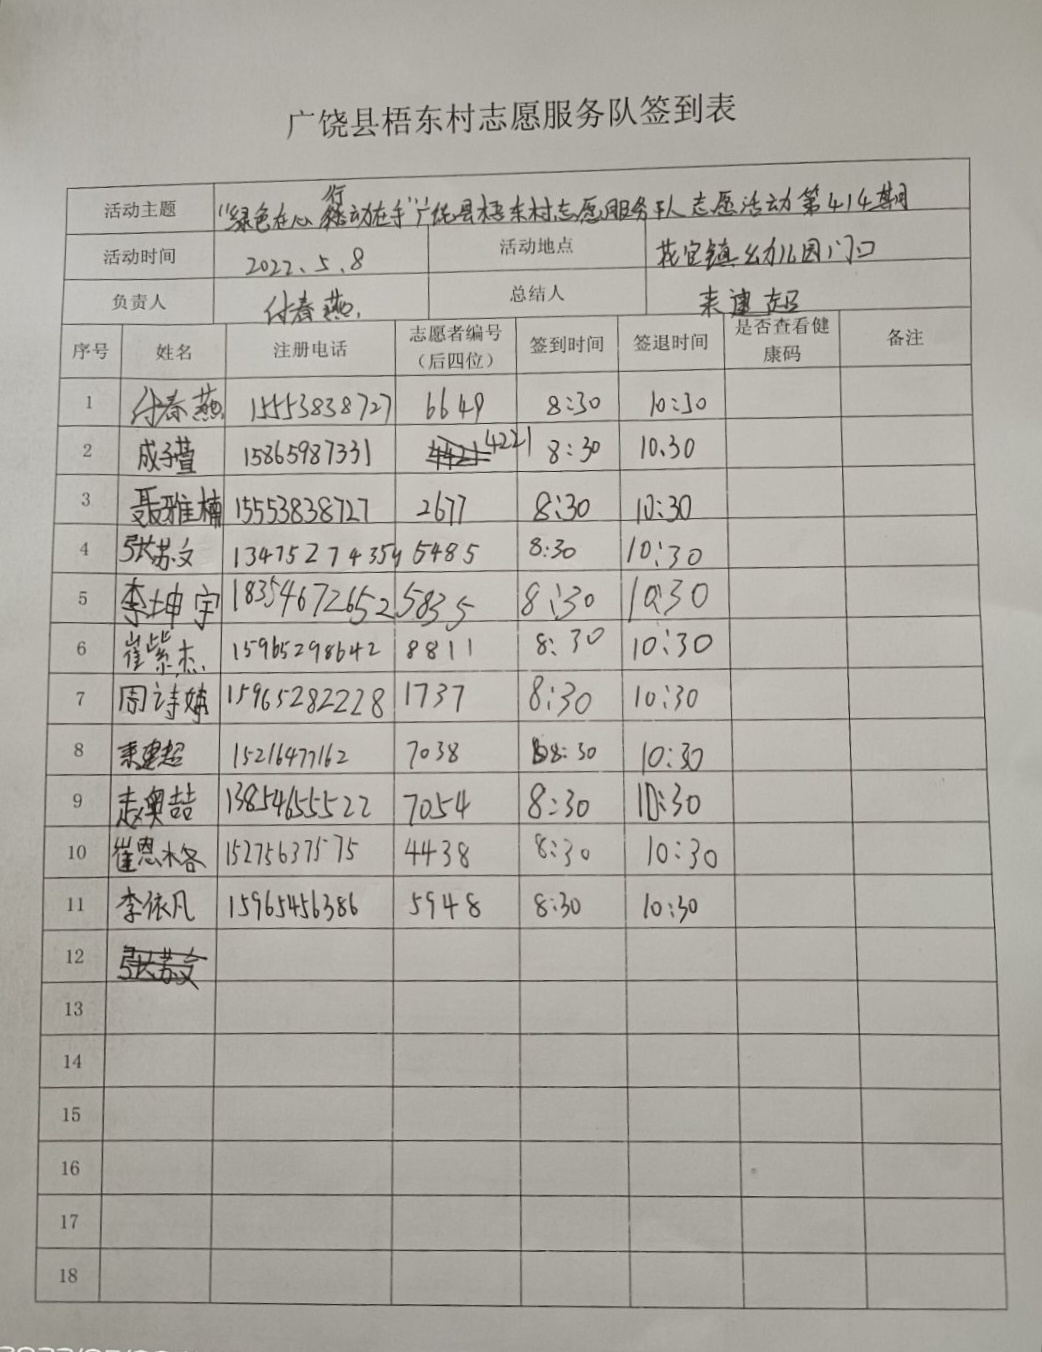 广饶县梧东村志愿服务队签到表
活动主题 "绿色在心 行动在手"广饶县梧东村志愿服务队志愿活动第414期
活动时间 2022.5.8 活动地点 花官镇幼儿园门口
负责人 付春燕 总结人 来建超
序号 姓名 注册电话 志愿者编号（后四位） 签到时间 签退时间 是否查看健康码 备注
1 付春燕 15553838727 6649 8:30 10:30
2 成子萱 15865987331 4221 8:30 10.30
3 聂雅楠 15553838727 2677 8:30 10:30
4 张苏文 13475274354 5485 8:30 10:30
5 李坤宇 18354672652 5835 8:30 10:30
6 崔紫杰 15965298642 8811 8:30 10:30
7 周诗婧 15965282228 1737 8:30 10:30
8 来建超 15216477162 7038 8:30 10:30
9 赵奥喆 13854655522 7054 8:30 10:30
10 崔恩格 15275637575 4438 8:30 10:30
11 李依凡 15965456386 5948 8:30 10:30
12 张苏文
13
14
15
16
17
18